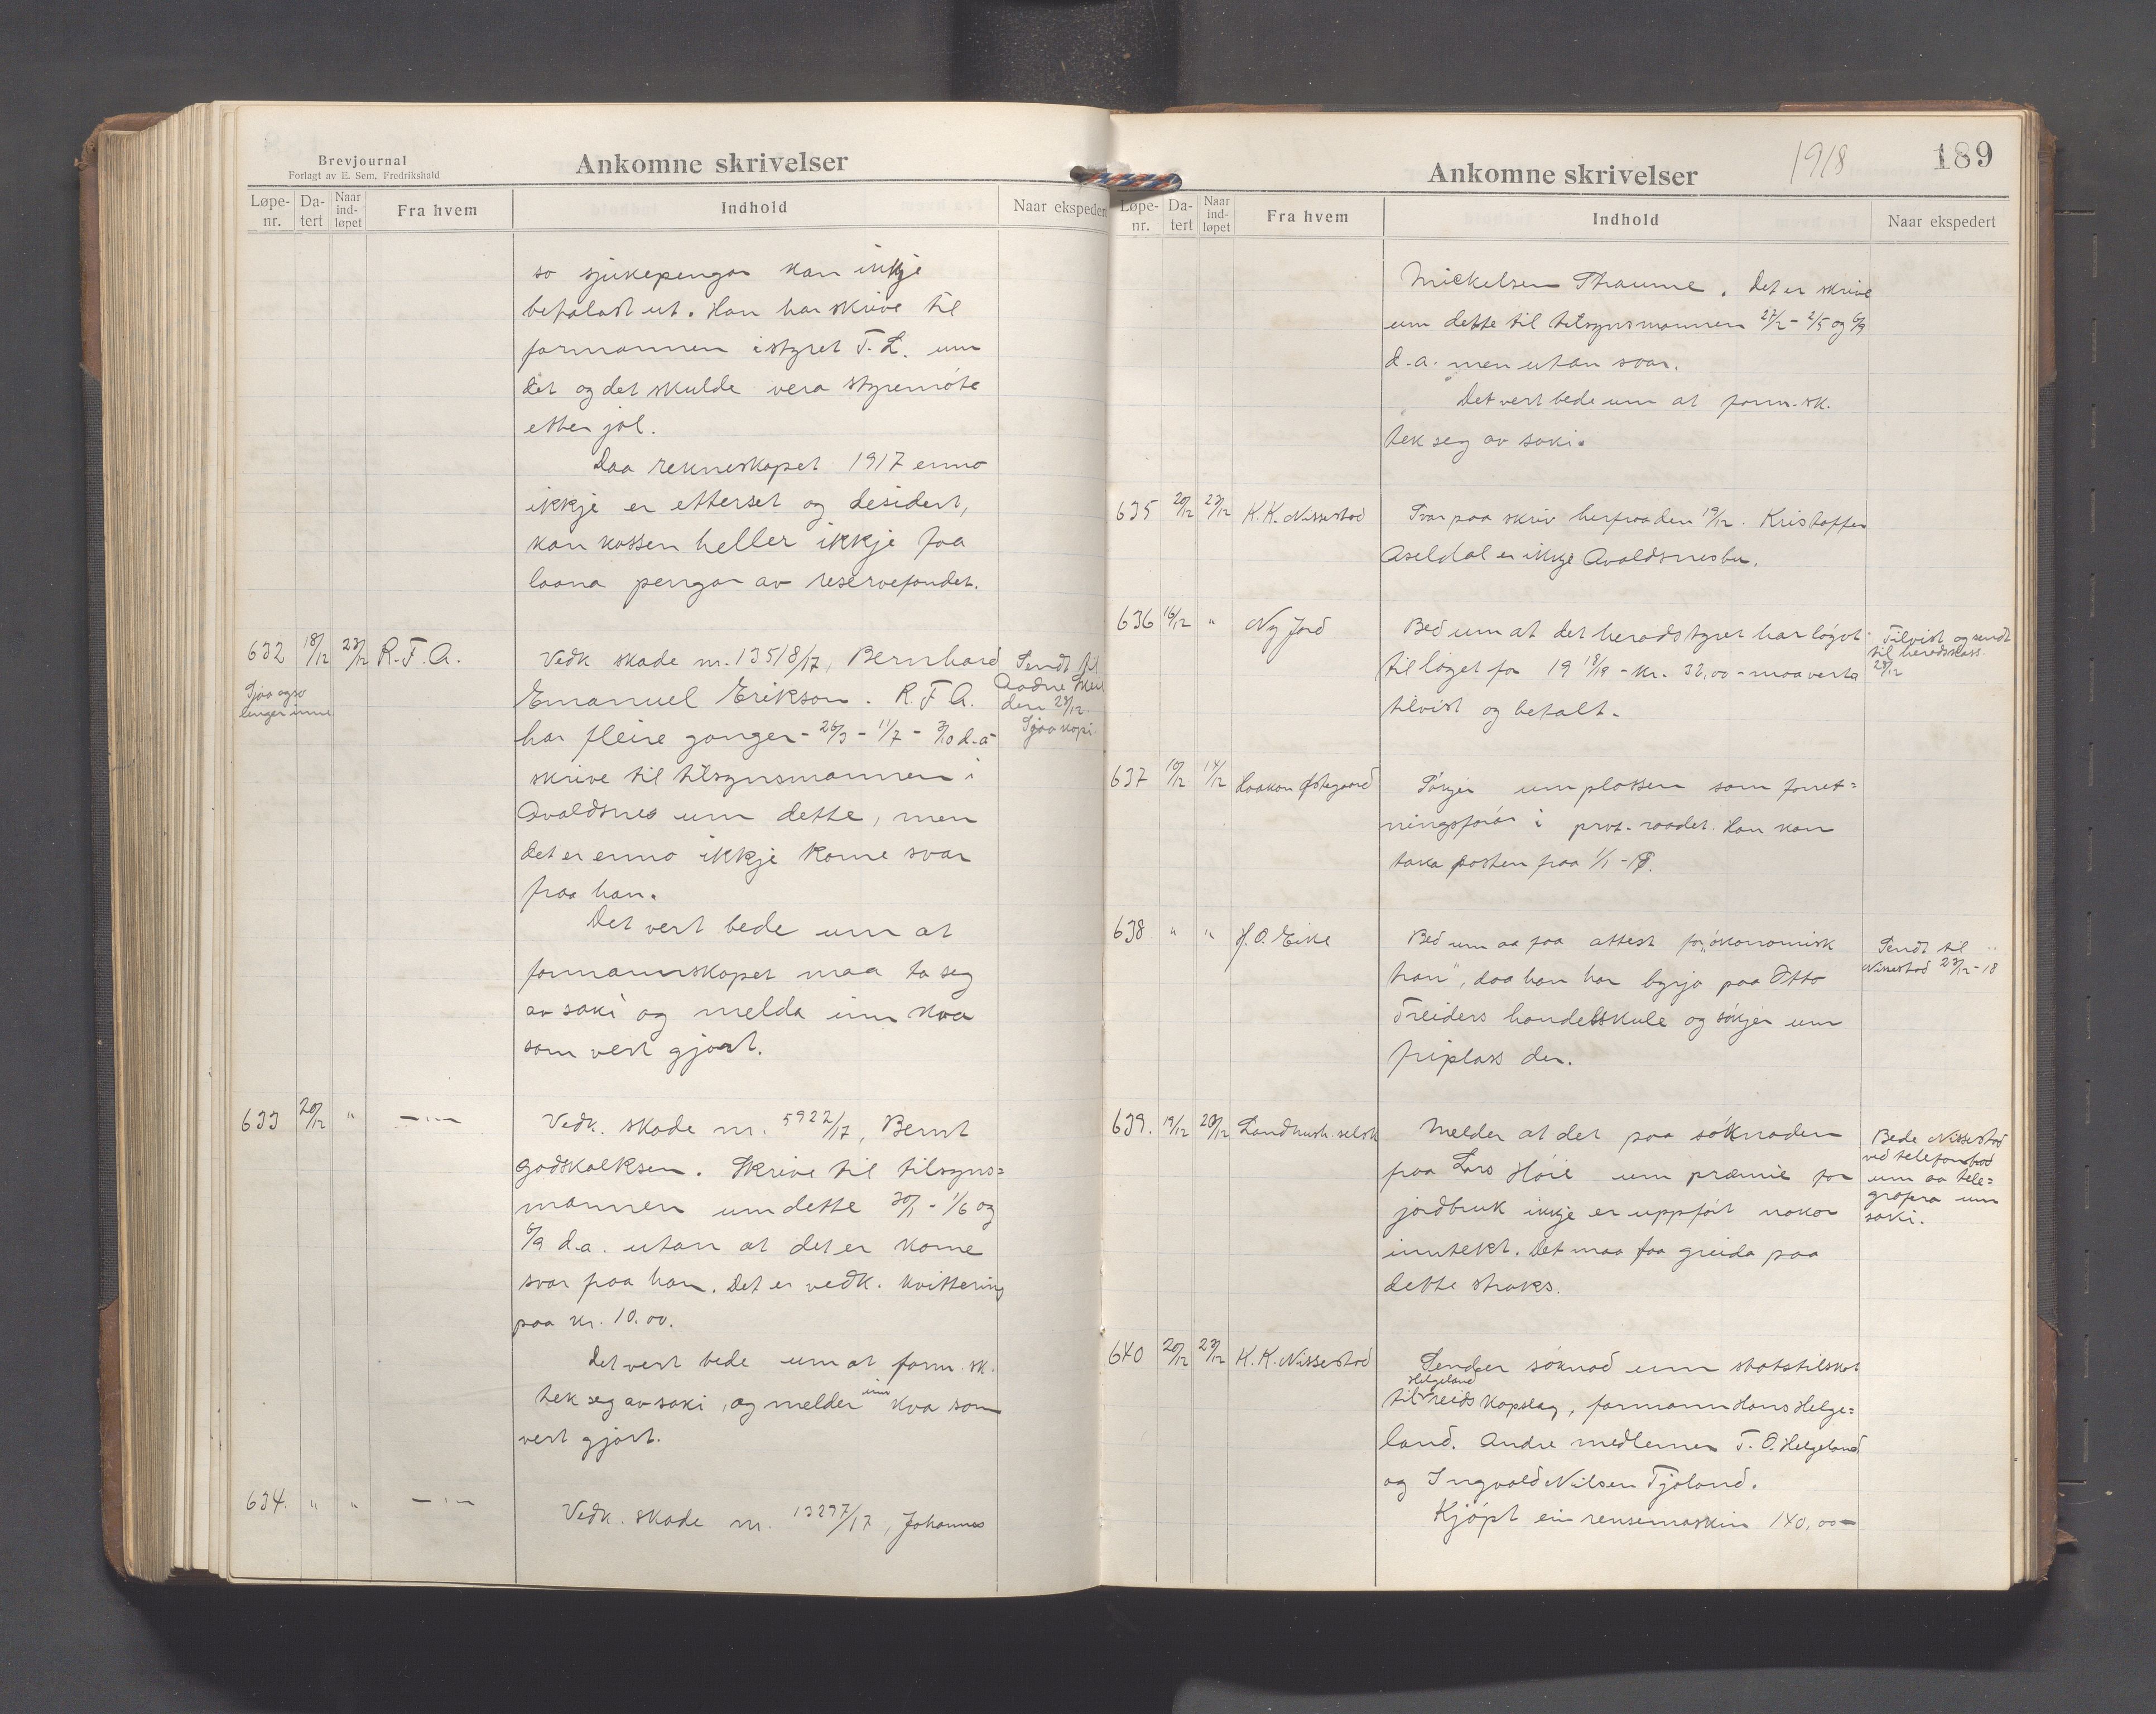 Brevjournal
Forlagt av E. Sem, Fredrikshald
Ankomne skrivelser
Løpe-nr. Da-tert Naar ind-løpet Fra hvem Indhold Naar ekspedert
so sjukepengar kan ikkje
betalast ut. Han har skrive til
formannen i styret T. L. um
det og det skulde vera styremöte
etter jol.
Daa rekneskapet 1917 enno
ikkje er etterset og desidert,
kan kassen heller ikkje faa
laana pengar av reservefondet.
632 18/12 23/12 R.F.A. Vedk skade nr. 13518/17, Bernhard
Sjaa ogso
lenger inne
Emanuel Erikson. R.F.A.
har fleire gonger - 26/3 - 11/7 - 3/10 d.a -
skrive til tilsynsmannen i
Avaldsnes um dette, men
det er enno ikkje kome svar
fraa han.
Det vert bede um at
formannskapet maa ta seg
av saki og melda inn kva
som vert gjort.
Sendt til
Aadne
den 28/12.
Sjaa kopi.
633 20/12 " —"— Vedk. skade nr. 5922/17, Bernt
Godskalksen. Skrive til tilsyns=
mannen um dette 30/1 - 1/6 og
6/9 d.a. utan at det er kome
svar fraa han. Det er vedk. kvittering
paa kr. 10.00.
Det vert bede um at form.sk.
tek seg av saki, og melder inn kva som
vert gjort.
634. " " —"— Vedk. skade nr. 13297/17, Johannes
1918
189
Ankomne skrivelser
Løpe-nr. Da-tert Naar ind-løpet Fra hvem Indhold Naar ekspedert
Mickelsen Thraume. Det er skrive
um dette til tilsynsmannen 27/2 - 2/5 og 6/9
d.a. men utan svar.
Det vert bede um at form.sk.
tek seg av saki.
635 20/12 23/12 K.K. Nissestad Svar paa skriv herfraa den 19/12. Kristoffer
Aseldal er ikkje Avaldsnesbu.
636 16/12 " Ny Jord Bed um at det heradstyret har löyvt
til laget for 19 18/19 - kr. 32,00 - maa verta
tilvist og betalt.
Tilvist og sendt
til heradskass.
28/12
637 10/12 14/12 Haakon Østegaard Sökjer um plassen som forret=
ningsförar i prov. raadet. Han kan
taka posten fraa 1/1 - 19.
638 " " H.O. Eike Bed um aa faa attest for "ökonomisk
tran", daa han har byrja paa Otto
Treiders handelsskule og sökjer um
friplass der.
Sendt til
Nissestad 23/12-18
639. 19/12 20/12 Landhush. selsk Melder at det paa söknaden
fraa Lars Höie um præmie for
jordbruk ikkje er uppfört nokor
inntekt. Det maa faa greida paa
dette straks.
Bede Nissestad
ved telefonbod
um aa tele=
grafera um
saki.
640 20/12 23/12 K.K. Nissestad Sender söknad um statstilskot
til Helgeland reidskapslag, formann Hans Helge=
land. Andre medlemer T.O. Helgeland
og Ingvald Nilsen Tjoland.
Kjöpt ein rensemaskin 140,00 -